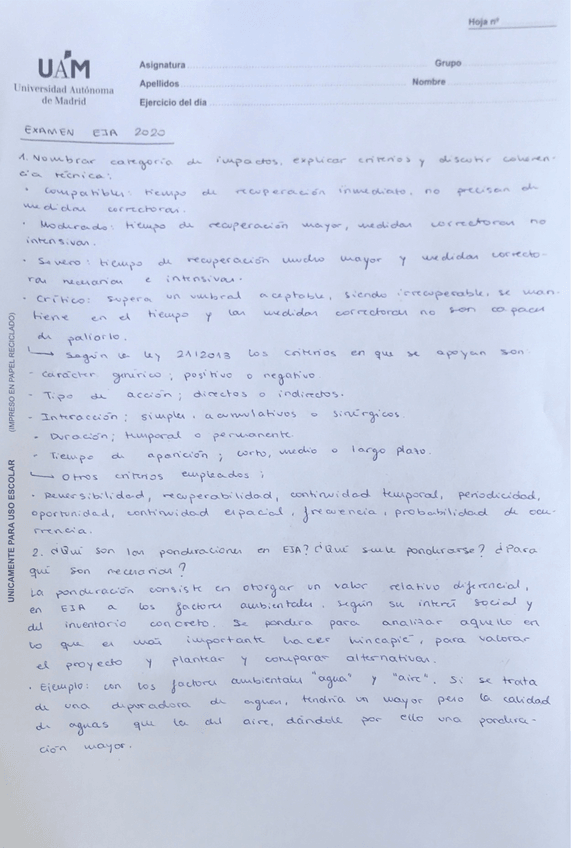 Hoja nº
UAM
Universidad Autónoma
de Madrid
Asignatura
Grupo
Apellidos
Nombre
Ejercicio del día
EXAMEN EIA 2020
1. Nombrar categoría de impactos, explicar criterios y discutir coheren-
cia técnica:
· Compatibles: tiempo de recuperación inmediato, no precisan de
medidas correctoras.
· Moderado: tiempo de recuperación mayor, medidas correctoras no
intensivas.
· Severo: tiempo de recuperación mucho mayor y medidas correcto-
ras necesarias e intensivas.
· Crítico: supera un umbral aceptable, siendo irrecuperable, se man-
tiene en el tiempo y las medidas correctoras no son capaces
de paliarlo.
↳ Según la ley 21/2013 los criterios en que se apoyan son:
- Carácter genérico; positivo o negativo
- Tipo de acción; directos o indirectos.
- Interacción; simples, acumulativos o sinérgicos
- Duración; temporal o permanente
- Tiempo de aparición; corto, medio o largo plazo.
↳ Otros criterios empleados:
· Reversibilidad, recuperabilidad, continuidad temporal, periodicidad,
oportunidad, continuidad espacial, frecuencia, probabilidad de ocu-
rrencia.
2. ¿Qué son las ponderaciones en EIA? ¿Qué suele ponderarse? ¿Para
qué son necesarias?
La ponderación consiste en otorgar un valor relativo diferencial,
en EIA a los factores ambientales, según su interés social y
del inventario concreto. Se pondera para analizar aquello en
lo que es más importante hacer hincapié, para valorar
el proyecto y plantear y comparar alternativas.
· Ejemplo: con los factores ambientales "agua" y "aire". Si se trata
de una depuradora de aguas, tendría un mayor peso la calidad
de aguas que la del aire, dándole por ello una pondera-
ción mayor.
UNICAMENTE PARA USO ESCOLAR (IMPRESO EN PAPEL RECICLADO)